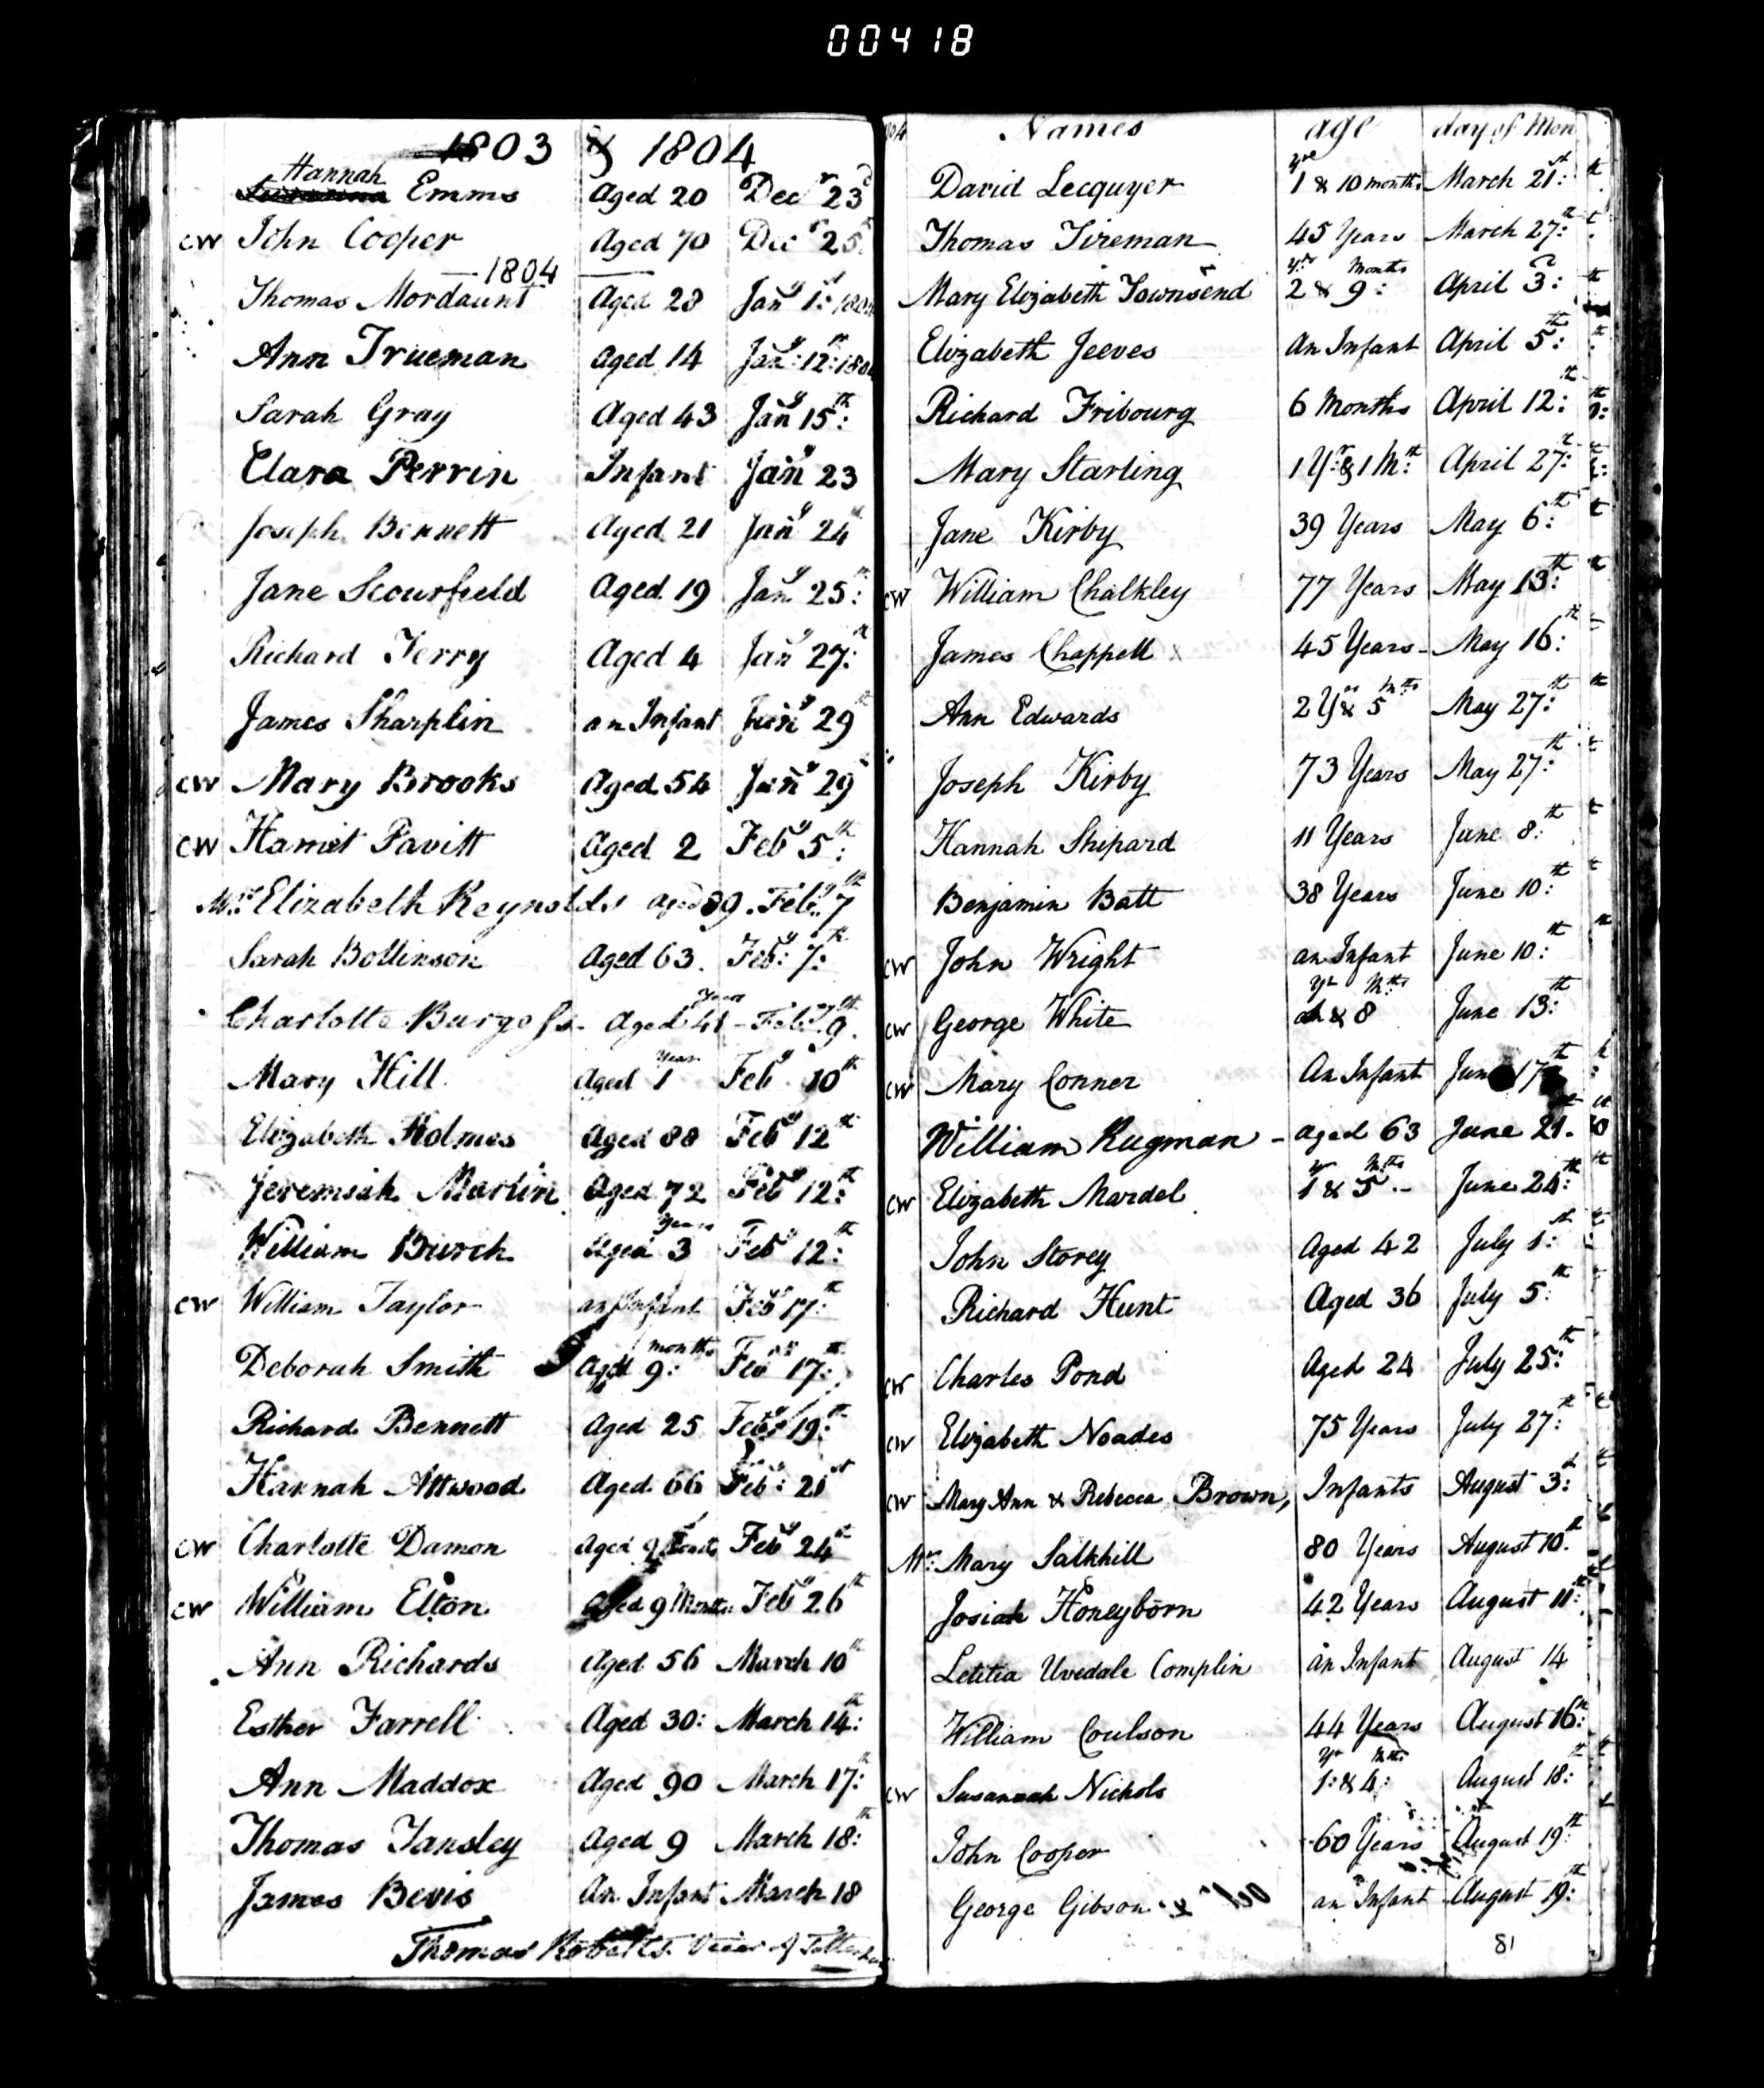 00418
1803 & 1804
Hannah
Emms Aged 20 Decr 23d
CW John Cooper Aged 70 Decr 25
1804
Thomas Mordaunt Aged 28 Jany 1st 1804
Ann Trueman Aged 14 Jany: 12th: 1804
Sarah Gray Aged 43 Jany 15th:
Clara Perrin Infant Jany 23
Joseph Bennett Aged 21 Jany 24th
Jane Scourfield Aged 19 Jany 25th:
Richard Terry Aged 4 Jany 27th:
James Sharplin an Infant Jany 29th
CW Mary Brooks Aged 54 Jany 29
CW Harriet Pavitt Aged 2 Feby 5th:
Mrs: Elizabeth Reynolds aged 89. Feby. 7th
Sarah Bollinson Aged 63. Feby: 7th:
Charlotte Burgess - Aged 41 Years - Feby 9th.
Mary Hill Aged 1 Year Feby 10th
Elizabeth Holmes Aged 88 Feby 12th
Jeremiah Martin Aged 72 Feby 12th:
William Burch Aged 3 Years Feby 12th:
CW William Taylor an Infant Feby 17th:
Deborah Smith Aged 9: months Feby 17th:
Richard Bennett Aged 25 Feby 19th:
Hannah Attwood Aged 66 Feby: 21st
CW Charlotte Damon Aged 9 Feby 24th
CW William Elton Aged 9 Months Feby 26th
Ann Richards Aged 56 March 10th
Esther Farrell Aged 30: March 14th:
Ann Maddox Aged 90 March 17th:
Thomas Tansley Aged 9 March 18th:
James Bevis An Infant March 18
Thomas Roberts Vicar of Tottenham
1804 Names age day of Mon
David Lecquyer 1 yr & 10 months March 21st:
Thomas Tireman 45 Years March 27th:
Mary Elizabeth Townsend 2 Yrs & 9 Months: April 3d:
Elizabeth Jeeves An Infant April 5th:
Richard Fribourg 6 Months April 12th:
Mary Starling 1 Yr: & 1 Mth: April 27th:
Jane Kirby 39 Years May 6th:
CW William Chalkley 77 Years May 13th:
James Chappell 45 Years - May 16th:
Ann Edwards 2 Yrs & 5 Mths May 27th:
Joseph Kirby 73 Years May 27th:
Hannah Shipard 11 Years June 8th:
Benjamin Batt 38 Years June 10th:
CW John Wright an Infant June 10th:
CW George White Yr & 8 Mths June 13th:
CW Mary Conner An Infant June 17th
William Rugman - aged 63 June 21st.
CW Elizabeth Mardel 1 Yr & 5 Mths June 24th:
John Storey Aged 42 July 1st:
Richard Hunt Aged 36 July 5th:
CW Charles Pond Aged 24 July 25th:
CW Elizabeth Noades 75 Years July 27th:
CW Mary Ann & Rebecca Brown, Infants August 3d:
Mrs: Mary Salkhill 80 Years August 10th.
Josiah Honeyborn 42 Years August 11th:
Letitia Uvedale Complin an Infant August 14
William Coulson 44 Years August 16th:
CW Susannah Nichols 1: Yr & 4: Mths August 18th:
John Cooper 60 Years August 19th:
George Gibson an Infant August 19th:
81